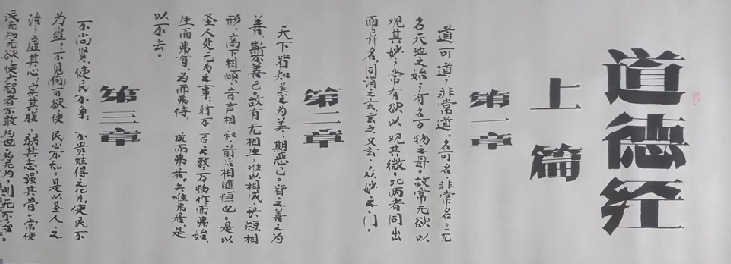 道德经
上篇
第一章
道可道，非常道，名可名，非常名，无
名天地之始，有名万物之母，故常无欲以
观其妙，常有欲以观其徼，此两者同出
而异名，同谓之玄，玄之又玄，众妙之门，
第二章
天下皆知美之为美，斯恶已，皆知善之为
善，斯不善已，故有无相生，难以相成，长短相
形，高下相倾，音声相和，前后相随恒也，是以
圣人处无为之事，行不言之教，万物作而弗始，
生而弗有，为而弗恃，成而弗居，夫唯弗居，是
以不去。
第三章
不尚贤，使民不争，不贵难得之货，使民不
为盗，不见可欲，使民心不乱，是以圣人之
治，虚其心，实其腹，弱其志，强其骨，常使
民无知无欲，使夫智者不敢为也，为无为，则无不治。